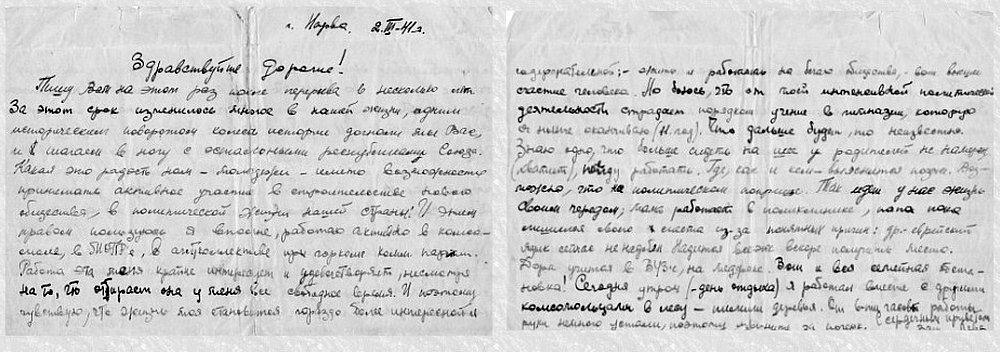 г. Нарва. 2.III-41г.
Здравствуйте дорогие!
Пишу Вам на этот раз после перерыва в несколько лет.
За этот срок изменилось много в нашей жизни, одним
историческим поворотом колеса истории догнали мы Вас,
и шагаем в ногу с остальными республиками Союза.
Какая это радость нам - молодежи - иметь возможность
принимать активное участие в строительстве нового
общества, в политической жизни нашей страны! И этим
правом пользуюсь я вполне, работаю активно в комсо-
моле, в МОПРе, в агитколлективе при горкоме компартии.
Работа эта меня крайне интересует и удовлетворяет, несмотря
на то, что отбирает она у меня все свободное время. И поэтому
чувствую, что жизнь моя становится гораздо более интересной и
содержательной; - жить и работать на благо общества, - вот высшее
счастье человека. Но боюсь, что от моей интенсивной политической
деятельности страдает порядком учение в гимназии, которую
я ныне оканчиваю (11. год). Что дальше будет, то неизвестно.
Знаю одно, что больше сидеть на шее у родителей не намерен
(хватит), пойду работать. Где, как и кем - выяснится позже. Воз-
можно, что на политическом поприще. Так идет у нас жизнь
своим чередом; мама работает в поликлинике, папа пока
лишился своего места из-за понятных причин: др.-еврейский
язык сейчас не надобен. Надеется все же вскоре получить место.
Дора учится в ВУЗе, на медфаке. Вот и вся семейная поста-
новка! Сегодня утром (- день отдыха) я работал вместе с другими
комсомольцами в лесу - пилили деревья. От 6-ти часов работы
руки немного устали, поэтому извините за почерк.
С сердечным приветом